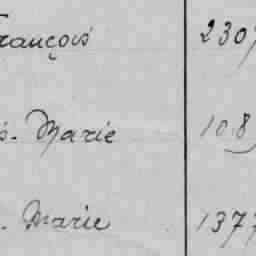 rançois 230
s. Marie 108
. Marie 137